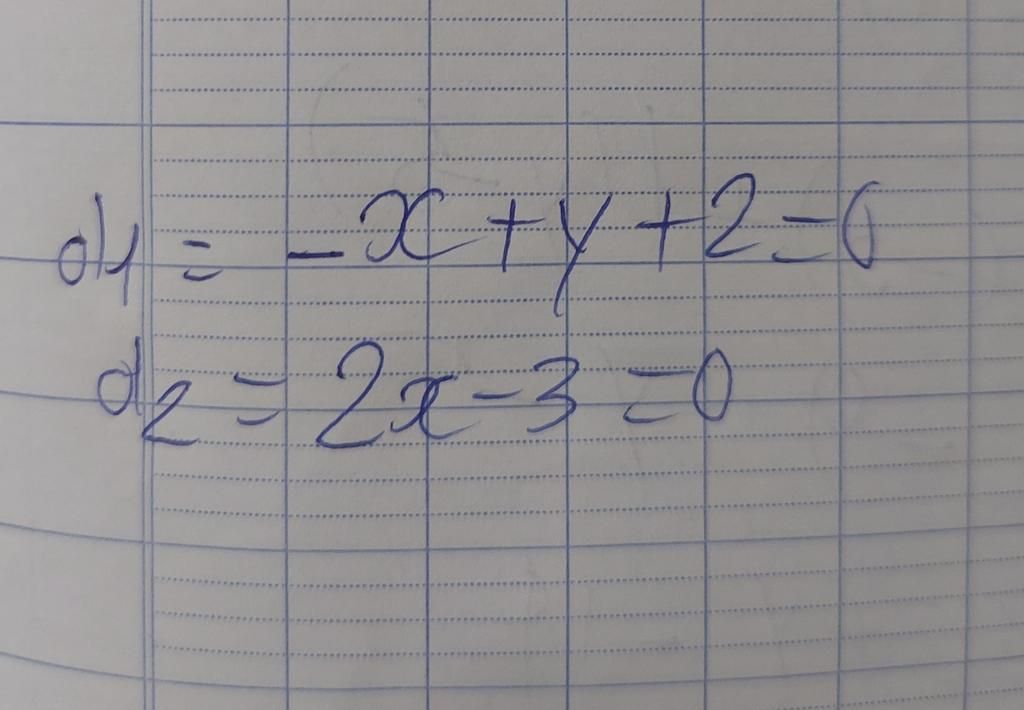 d1 = -x + y + 2 = 0
d2 = 2x - 3 = 0